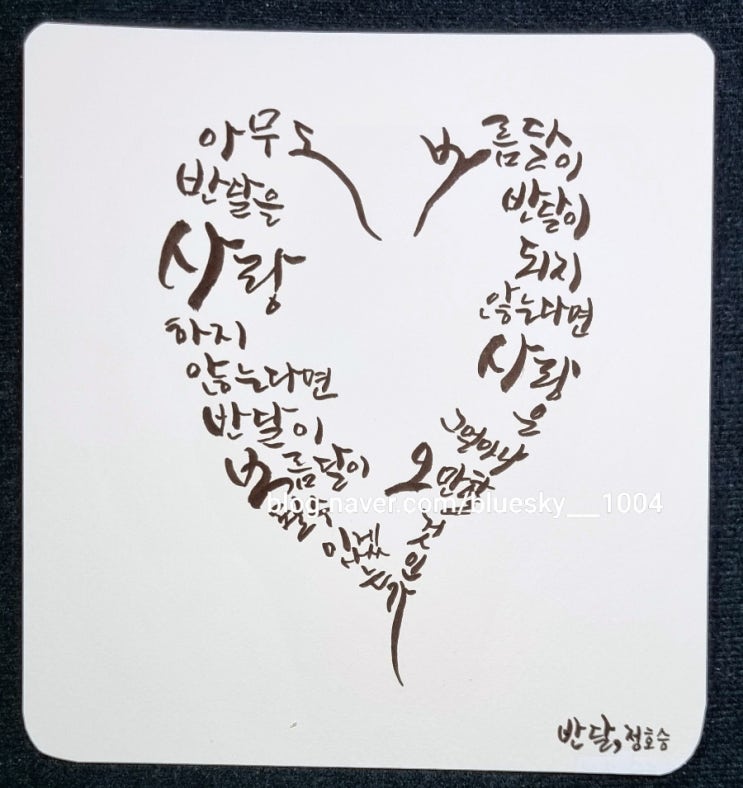 아무도
반달을
사랑
하지
않는다면
반달이
보름달이
될 수
있겠
는가
보름달이
반달이
되지
않는다면
사랑
은
그 얼마나
오만한
것
인
blog.naver.com/bluesky__1004
반달, 정호승